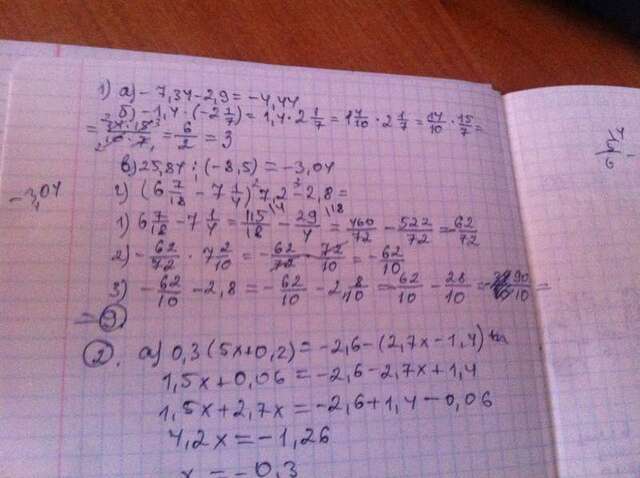 1) а) - 7,34 - 2,9 = -4,44
б) -1,4 · (-2 1/7) = 1,4 · 2 1/7 = 1 4/10 · 2 1/7 = 14/10 · 15/7 =
= 14·15/10·7 = 6/2 = 3
в) 25,84 : (-8,5) = -3,04
г) (6 7/18 - 7 1/4) · 7,2 - 2,8 =
1) 6 7/18 - 7 1/4 = 115/18 - 29/4 = 460/72 - 522/72 = -62/72
2) - 62/72 · 7 2/10 = - 62/72 · 72/10 = - 62/10
3) - 62/10 - 2,8 = - 62/10 - 2 8/10 = - 62/10 - 28/10 = - 90/10 =
= 9
2. а) 0,3 (5x + 0,2) = -2,6 - (2,7x - 1,4)
1,5x + 0,06 = -2,6 - 2,7x + 1,4
1,5x + 2,7x = -2,6 + 1,4 - 0,06
4,2x = -1,26
x = -0,3
-3,04